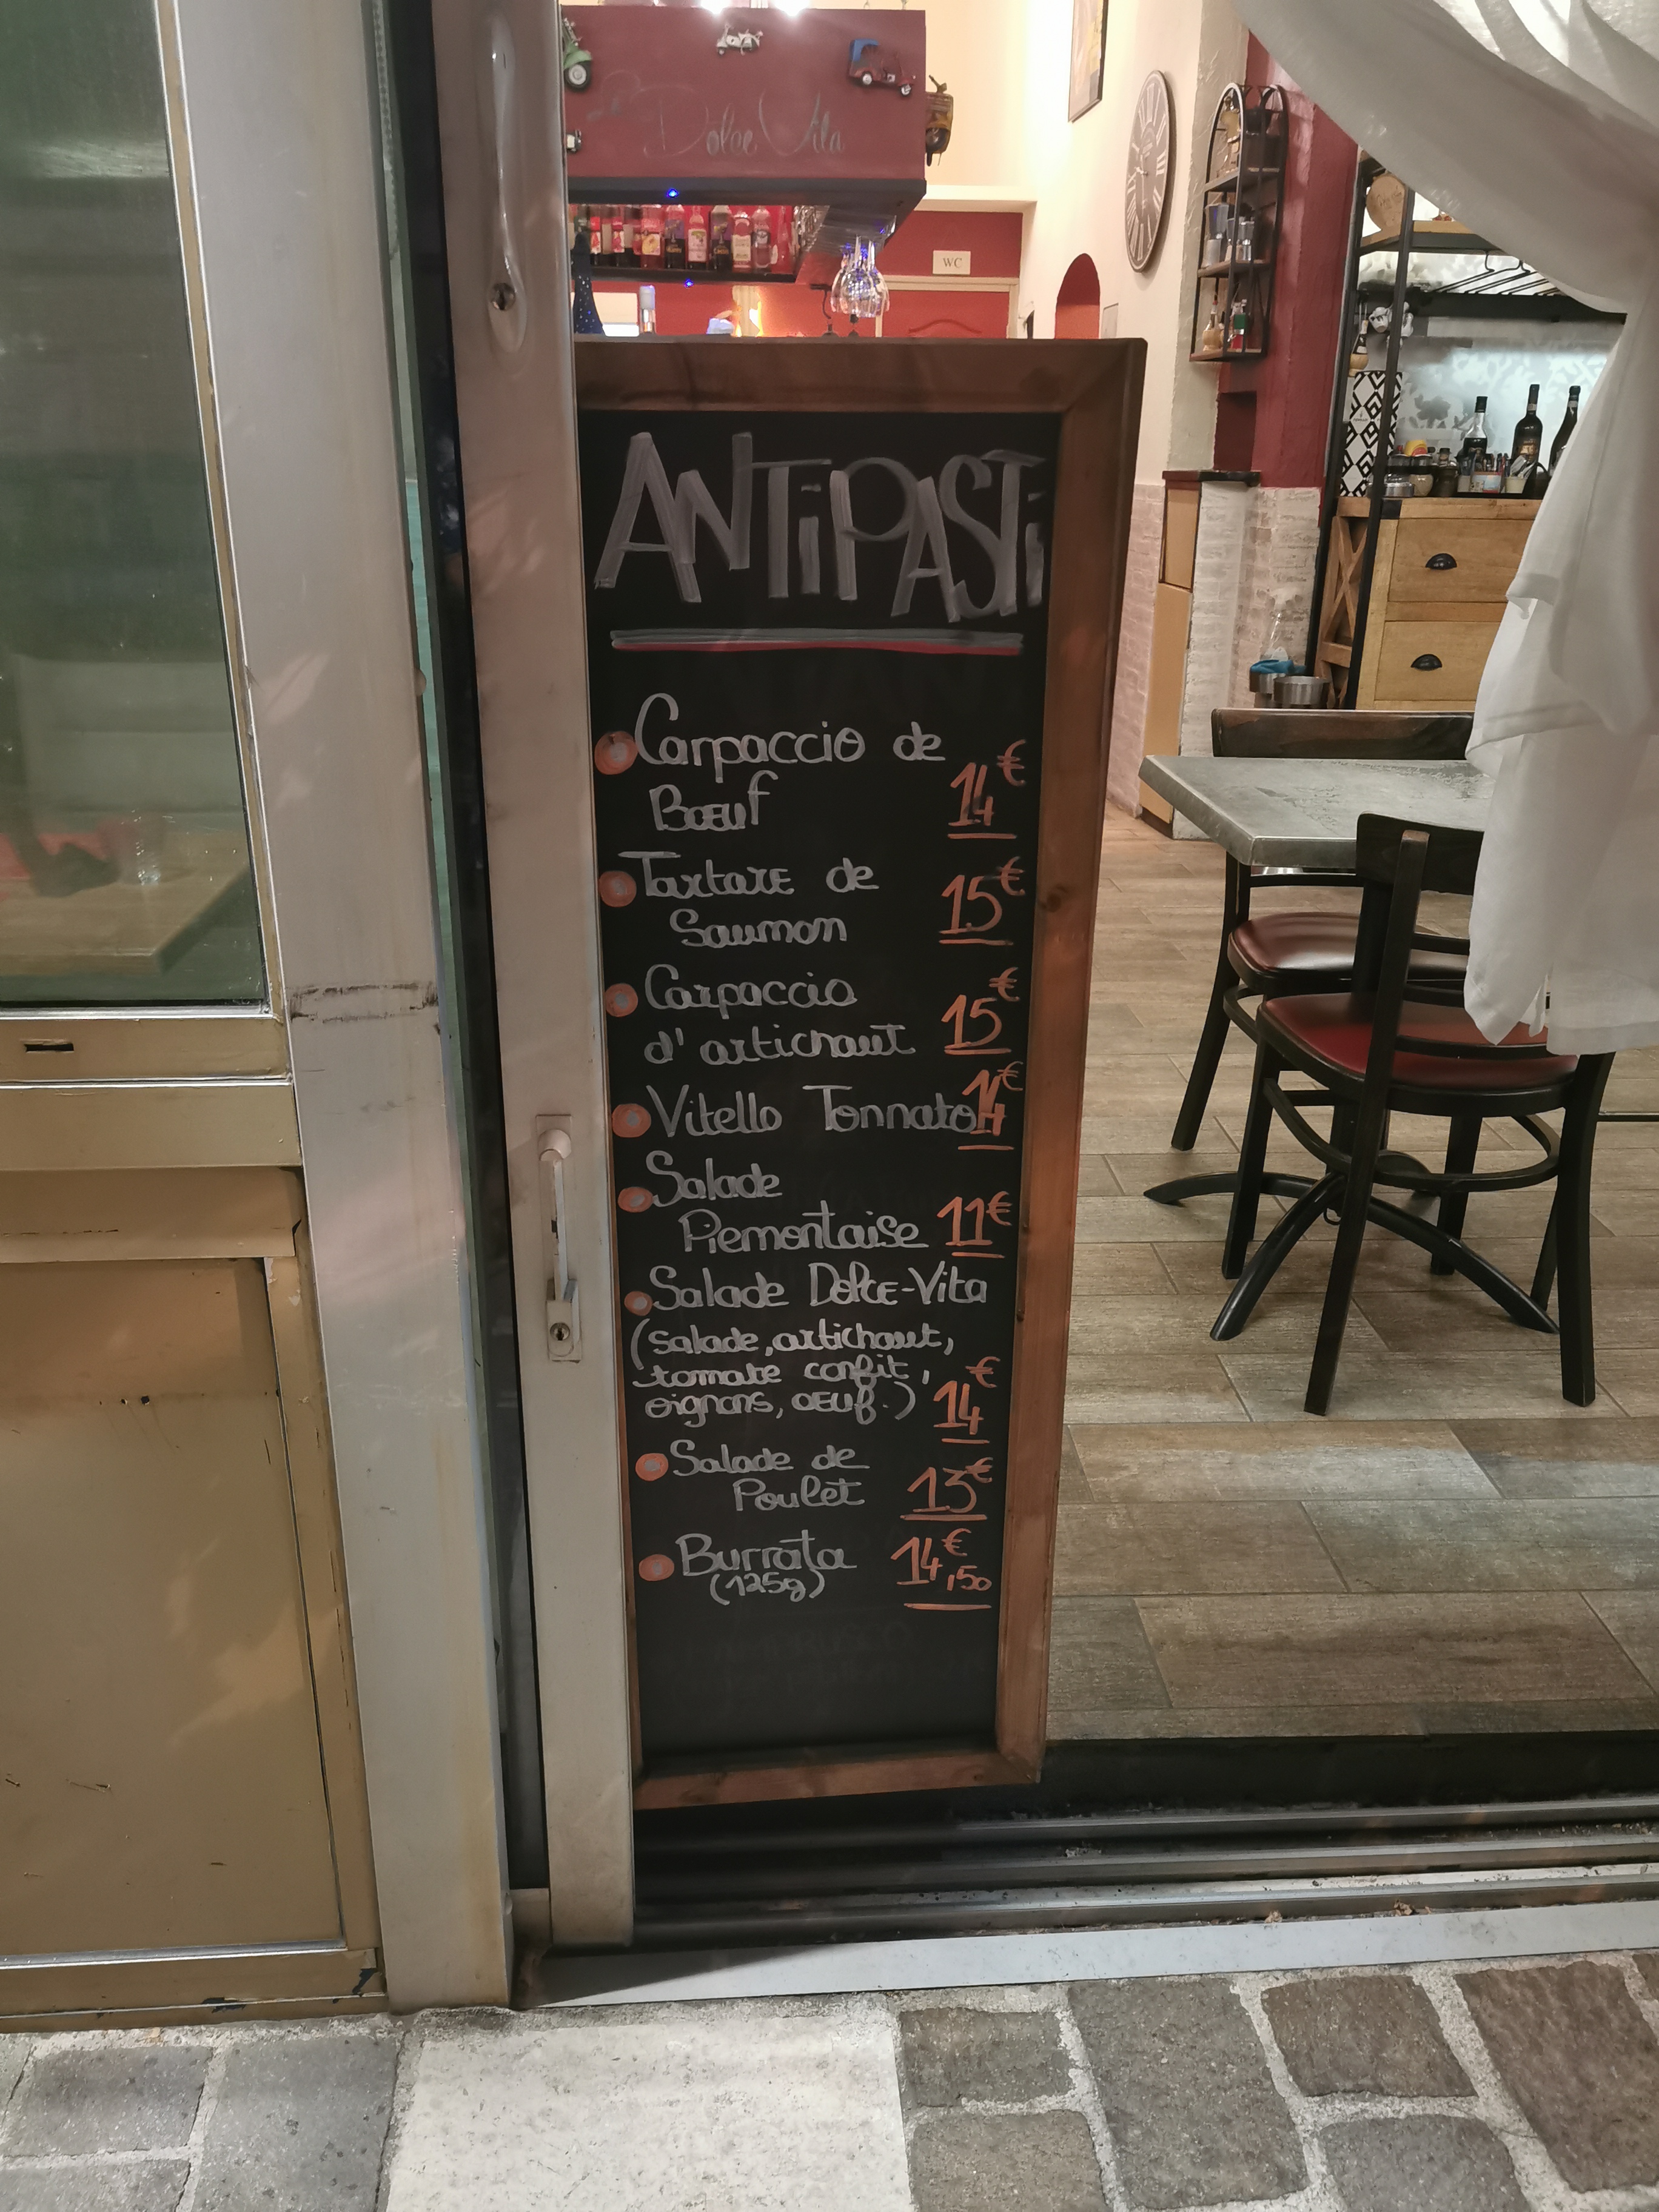 La Dolce Vita
WC
ANTiPASTi
Carpaccio de
Bœuf 14€
Tartare de
Saumon 15€
Carpaccio
d'artichaut 15€
Vitello Tonnato 14€
Salade
Piemontaise 11€
Salade Dolce-Vita
(salade, artichaut,
tomate confit,
oignons, œuf.) 14€
Salade de
Poulet 13€
Burrata 14€,50
(125g)